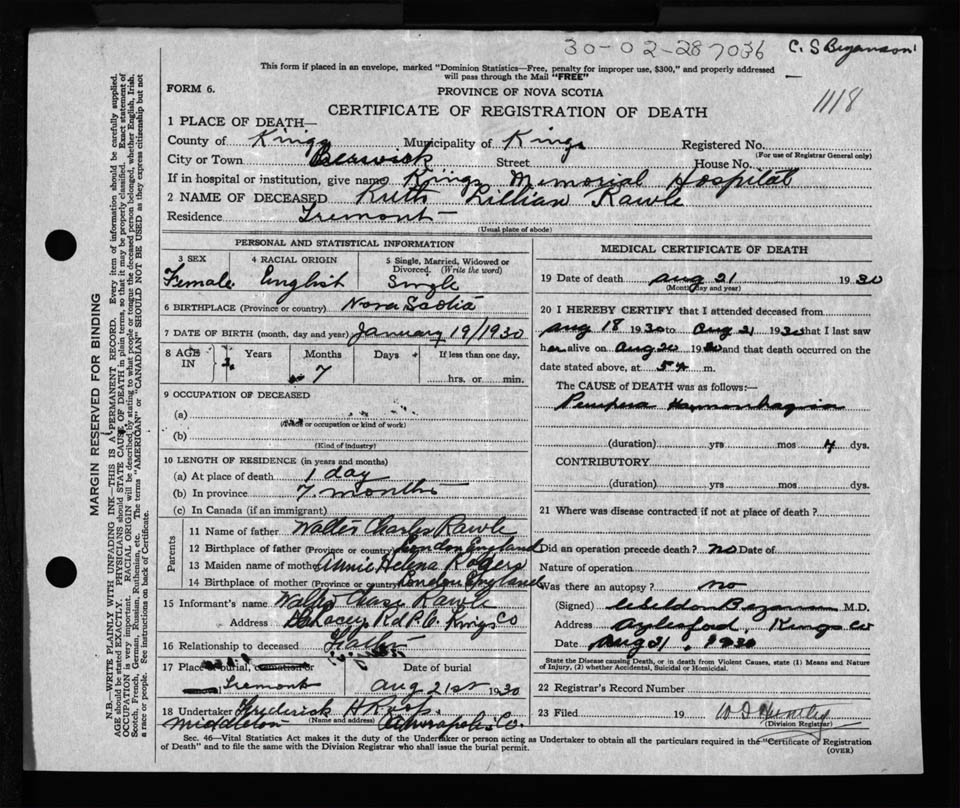 30-02-287036 C. S Bezanson
This form if placed in an envelope, marked "Dominion Statistics—Free, penalty for improper use, $300," and properly addressed
will pass through the Mail "FREE"
FORM 6. PROVINCE OF NOVA SCOTIA
CERTIFICATE OF REGISTRATION OF DEATH 1118
1 PLACE OF DEATH—
County of Kings Municipality of Kings Registered No.
(For use of Registrar General only)
City or Town Berwick Street House No.
If in hospital or institution, give name Kings Memorial Hospital
2 NAME OF DECEASED Ruth Lillian Rawle
Residence Tremont
(Usual place of abode)
MARGIN RESERVED FOR BINDING
N.B.—WRITE PLAINLY WITH UNFADING INK—THIS IS A PERMANENT RECORD. Every item of information should be carefully supplied.
AGE should be stated EXACTLY. PHYSICIANS should STATE CAUSE OF DEATH in plain terms, so that it may be properly classified. Exact statement of
OCCUPATION is very important. RACIAL ORIGIN will be described by stating to what people or tongue the deceased person belonged, whether English, Irish,
Scotch, French, German, Russian, Ruthenian, etc. The terms "AMERICAN" or "CANADIAN" SHOULD NOT BE USED as they express citizenship but not
a race or people. See instructions on back of Certificate.
PERSONAL AND STATISTICAL INFORMATION
3 SEX 4 RACIAL ORIGIN 5 Single, Married, Widowed or
Divorced. (Write the word)
Female English Single
6 BIRTHPLACE (Province or country) Nova Scotia
7 DATE OF BIRTH (month, day and year) January 19/1930
8 AGE IN Years Months Days If less than one day,
7 hrs. or min.
9 OCCUPATION OF DECEASED
(a)
(Trade or occupation or kind of work)
(b)
(Kind of industry)
10 LENGTH OF RESIDENCE (in years and months)
(a) At place of death 1 day
(b) In province 7 months
(c) In Canada (if an immigrant)
Parents
11 Name of father Walter Charles Rawle
12 Birthplace of father (Province or country) London England
13 Maiden name of mother Annie Helena Rogers
14 Birthplace of mother (Province or country) London England
15 Informant's name Walter Chas Rawle
Address Rd P.O. Kings Co
16 Relationship to deceased Father
17 Place of burial, cremation or Date of burial
Tremont Aug 21st 1930
18 Undertaker Frederick H
(Name and address)
Middleton Annapolis Co.
MEDICAL CERTIFICATE OF DEATH
19 Date of death Aug 21 1930
(Month, day and year)
20 I HEREBY CERTIFY that I attended deceased from
Aug 18 1930 to Aug 21 1930 that I last saw
her alive on Aug 20 1930 and that death occurred on the
date stated above, at 5 A m.
The CAUSE OF DEATH was as follows:—
Purpura Hemorrhagica
(duration) yrs mos 4 dys.
CONTRIBUTORY
(duration) yrs. mos. dys.
21 Where was disease contracted if not at place of death?
Did an operation precede death? no Date of
Nature of operation
Was there an autopsy? no
(Signed) Bezanson M.D.
Address Aylesford, Kings Co
Date Aug 21, 1930
State the Disease causing Death, or in death from Violent Causes, state (1) Means and Nature
of Injury, (2) whether Accidental, Suicidal or Homicidal.
22 Registrar's Record Number
23 Filed 19
(Division Registrar)
Sec. 46—Vital Statistics Act makes it the duty of the Undertaker or person acting as Undertaker to obtain all the particulars required in the "Certificate of Registration
of Death" and to file the same with the Division Registrar who shall issue the burial permit. (OVER)